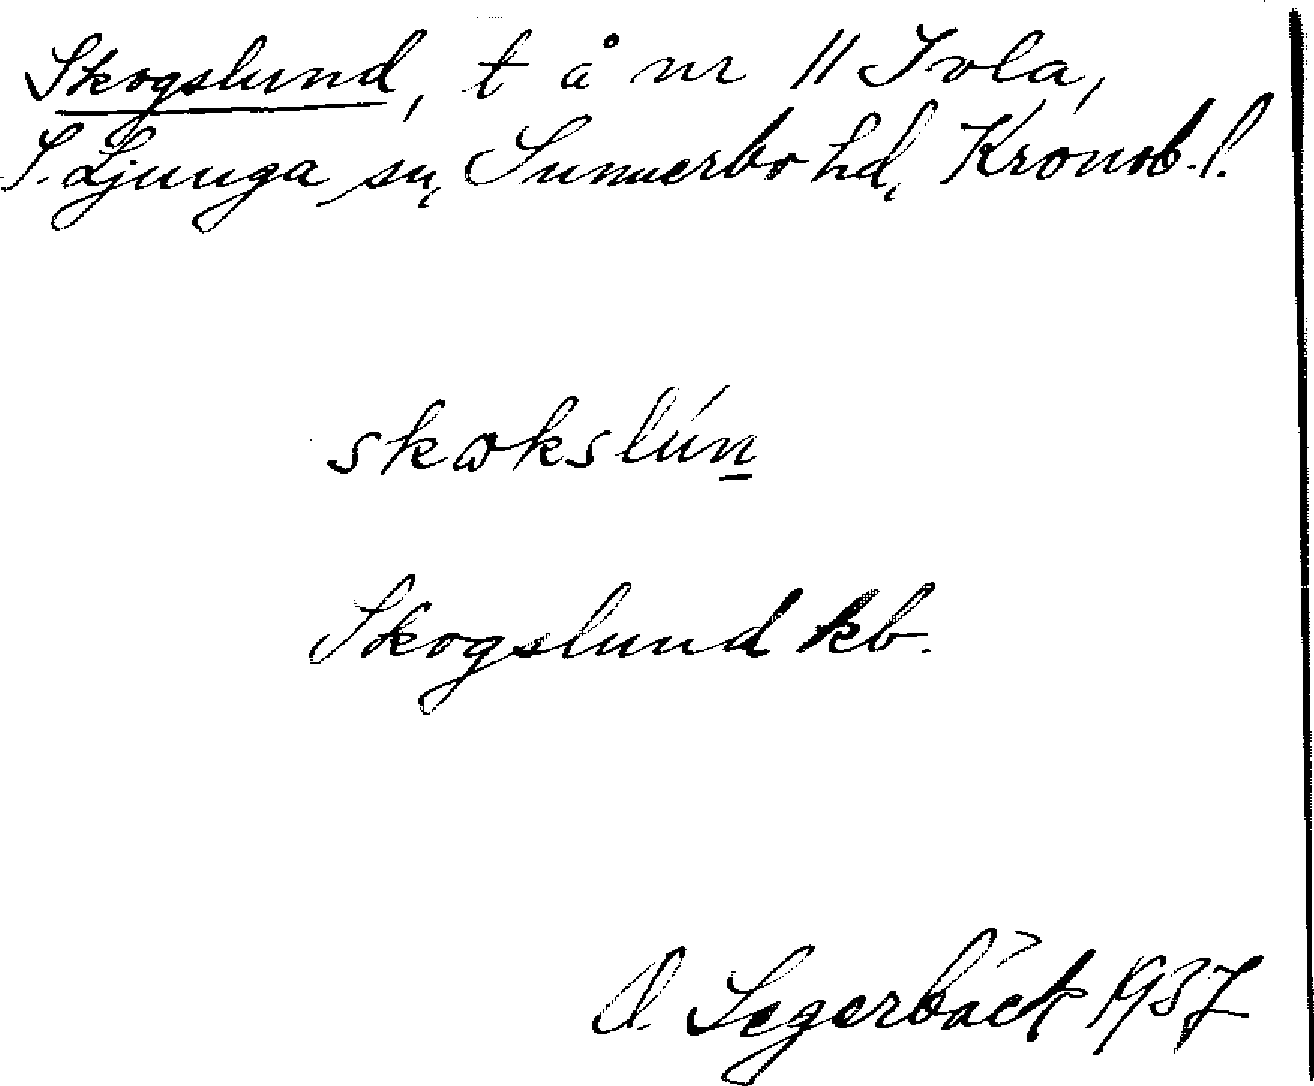 Skogslund, t å nr 11 Ivla,
S. Ljunga sn, Sunnerbo hd, Kronob. l.
skɷkslún
Skogslund kb.
O. Segerbäck 1937